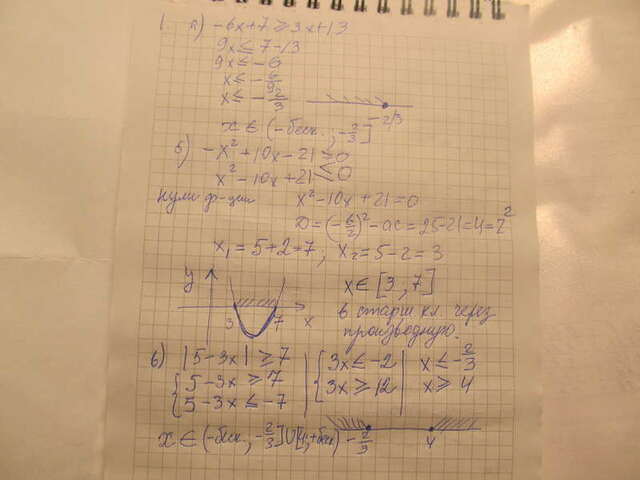 1. а) -6x+7 ≥ 3x+13
9x ≤ 7-13
9x ≤ -6
x ≤ -6/9
x ≤ -2/3
-2/3
x ∈ (-беск. ; -2/3]
б) -x²+10x-21 ≥ 0
x²-10x+21 ≤ 0
нули ф-ции x²-10x+21=0
D=(-b/2)²-ac=25-21=4=2²
x₁=5+2=7; x₂=5-2=3
y x ∈ [3; 7]
3 7 x
в старш кл. через
производную.
в) |5-3x| ≥ 7
{5-3x ≥ 7 | {3x ≤ -2 | x ≤ -2/3
{5-3x ≤ -7 | {3x ≥ 12 | x ≥ 4
x ∈ (-беск, -2/3]∪[4;+беск) -2/3 4